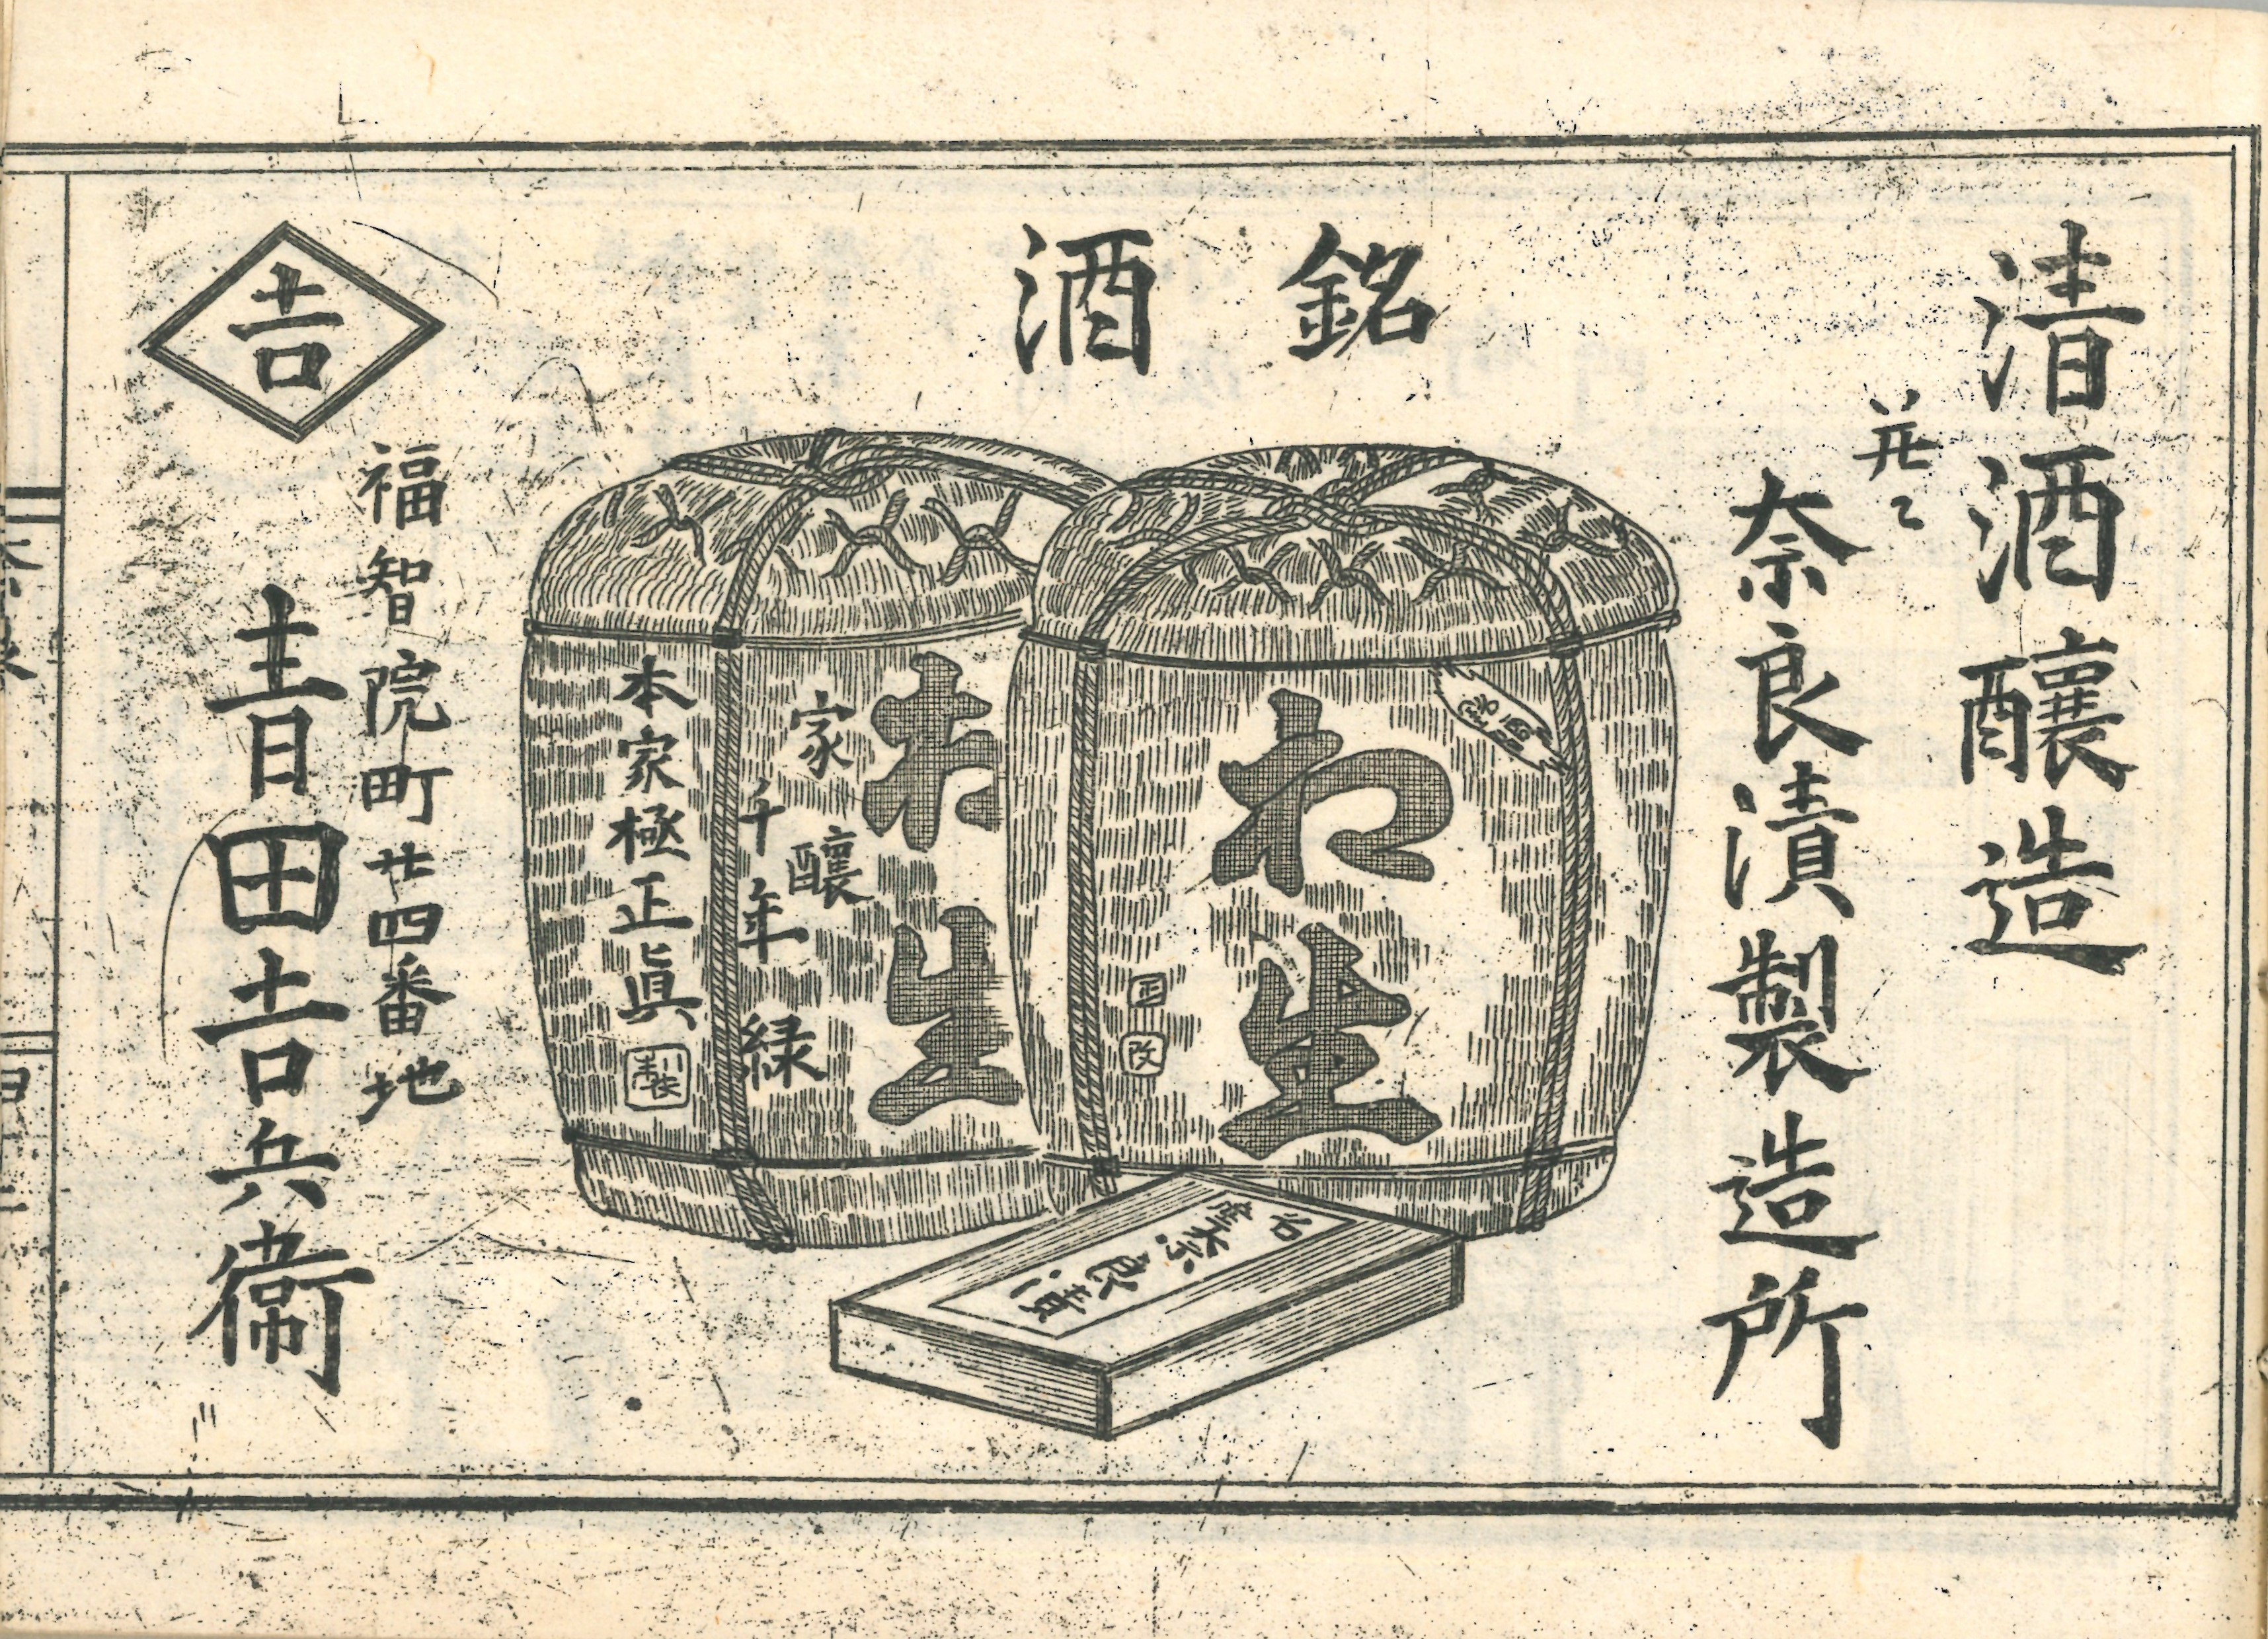 清酒醸造
并ニ
奈良漬製造所
銘酒
わ生
正
改
家醸
千年緑
本家極正眞
製
奈良漬
吉
福智院町廿四番地
青田吉兵衞